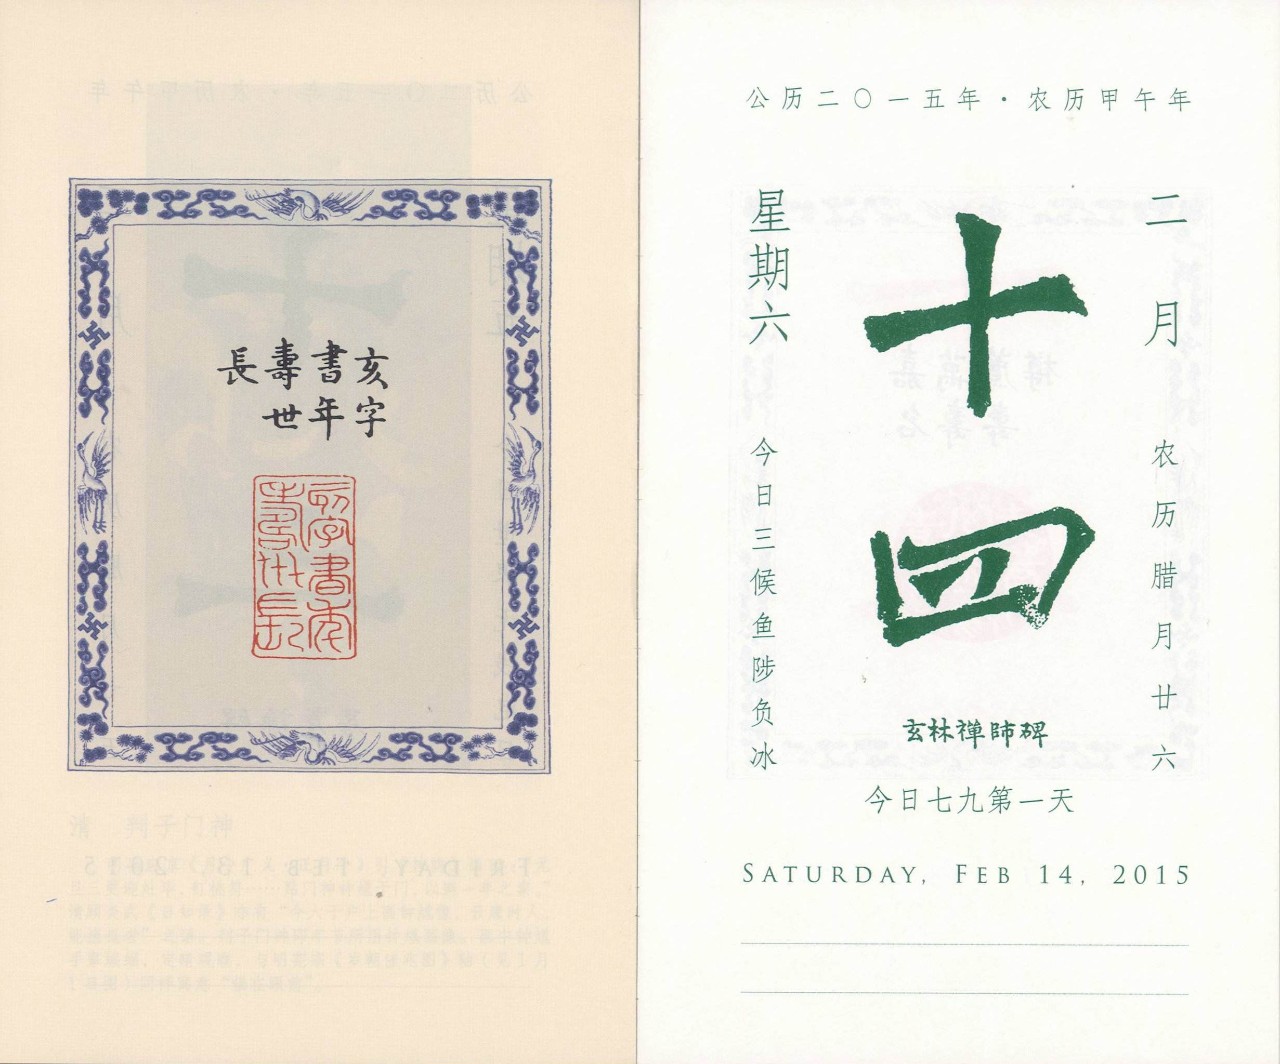 亥字
書年
壽世
長
亥字書年
壽世長
公历二〇一五年·农历甲午年
二月
农历腊月廿六
十四
玄林禅師碑
星期六
今日三候鱼陟负冰
今日七九第一天
SATURDAY, FEB 14, 2015